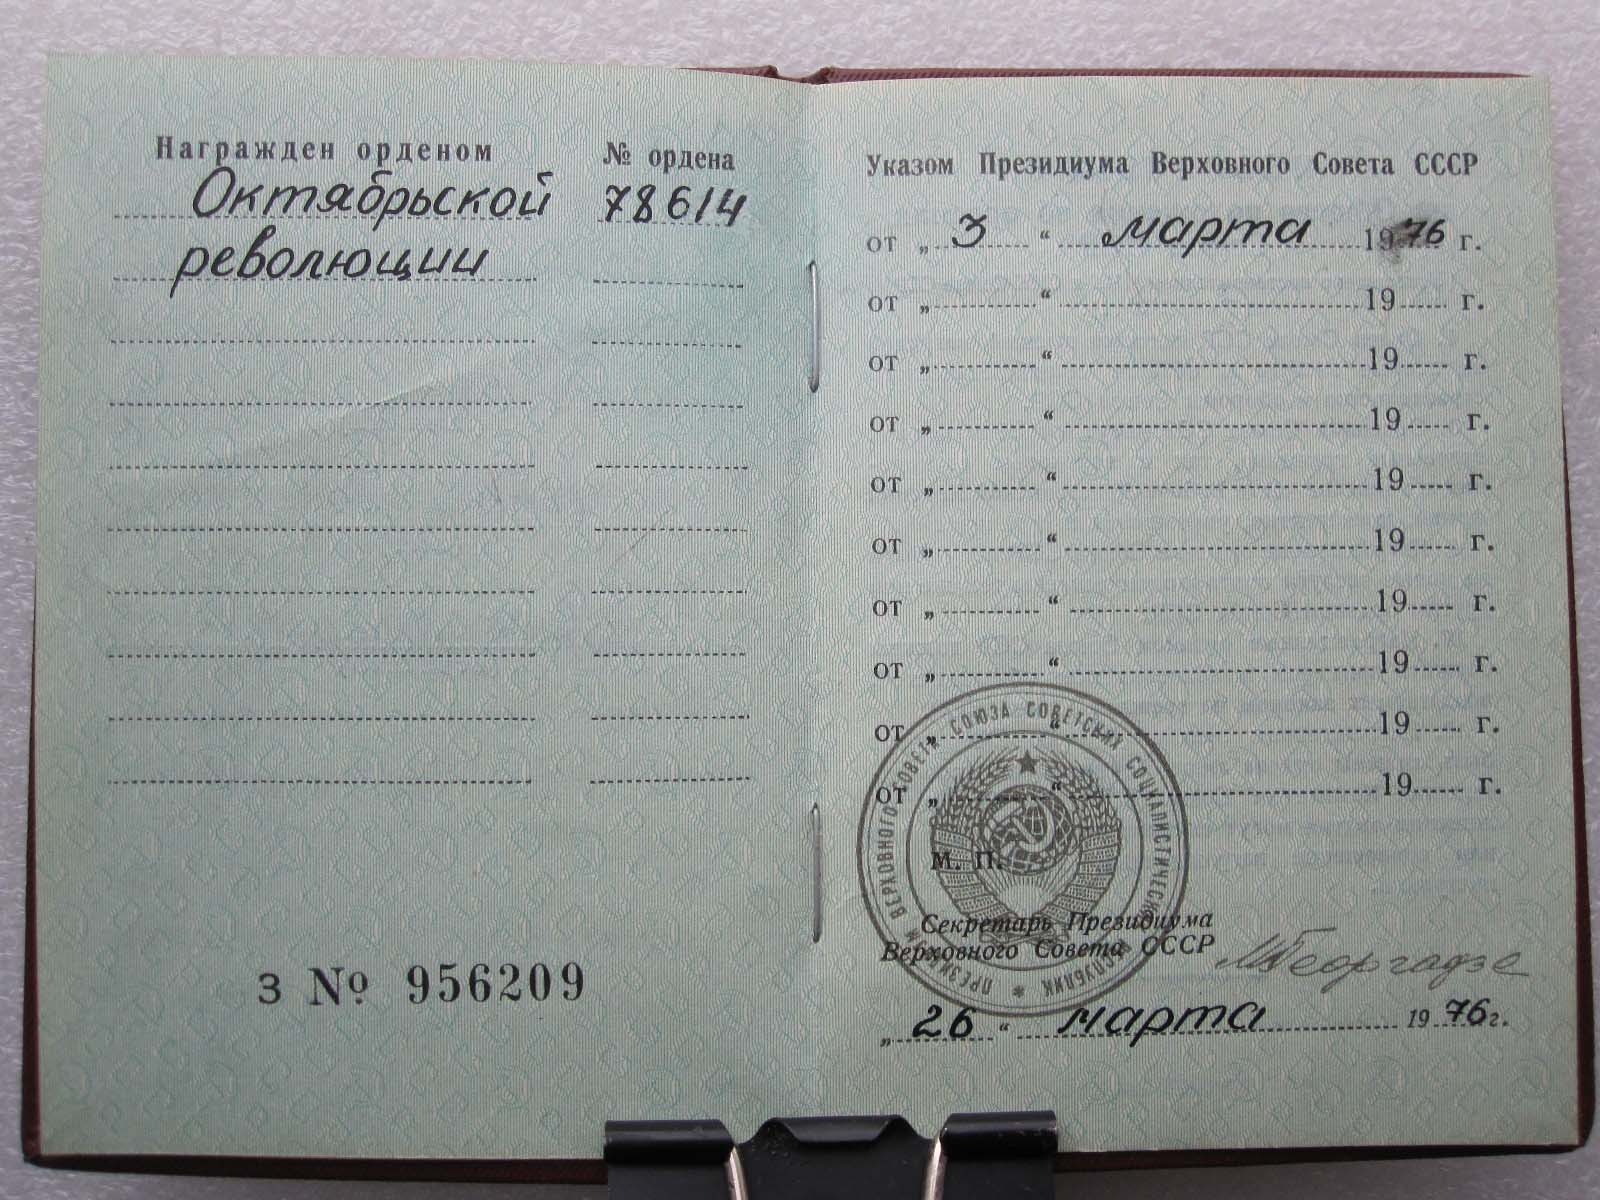 Награжден орденом № ордена
Октябрьской 78614
революции
З № 956209
Указом Президиума Верховного Совета СССР
от „ 3 “ марта 1976 г.
от „ “ 19 г.
от „ “ 19 г.
от „ “ 19 г.
от „ “ 19 г.
от „ “ 19 г.
от „ “ 19 г.
от „ “ 19 г.
от „ “ 19 г.
от „ “ 19 г.
М. П.
ПРЕЗИДИУМ ВЕРХОВНОГО СОВЕТА СОЮЗА СОВЕТСКИХ СОЦИАЛИСТИЧЕСКИХ РЕСПУБЛИК
Секретарь Президиума
Верховного Совета СССР МГеоргадзе
„ 26 “ марта 1976 г.